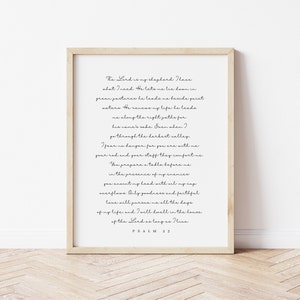 The Lord is my shepherd I have
what I need. He lets me lie down in
green pastures he leads me beside quiet
waters. He renews my life he leads
me along the right paths for
his name's sake. Even when I
go through the darkest valley,
I fear no danger, for you are with me
your rod and your staff they comfort me.
You prepare a table before me
in the presence of my enemies
you anoint my head with oil my cup
overflows. Only goodness and faithful
love will pursue me all the days
of my life, and I will dwell in the house
of the Lord as long as I live
PSALM 23